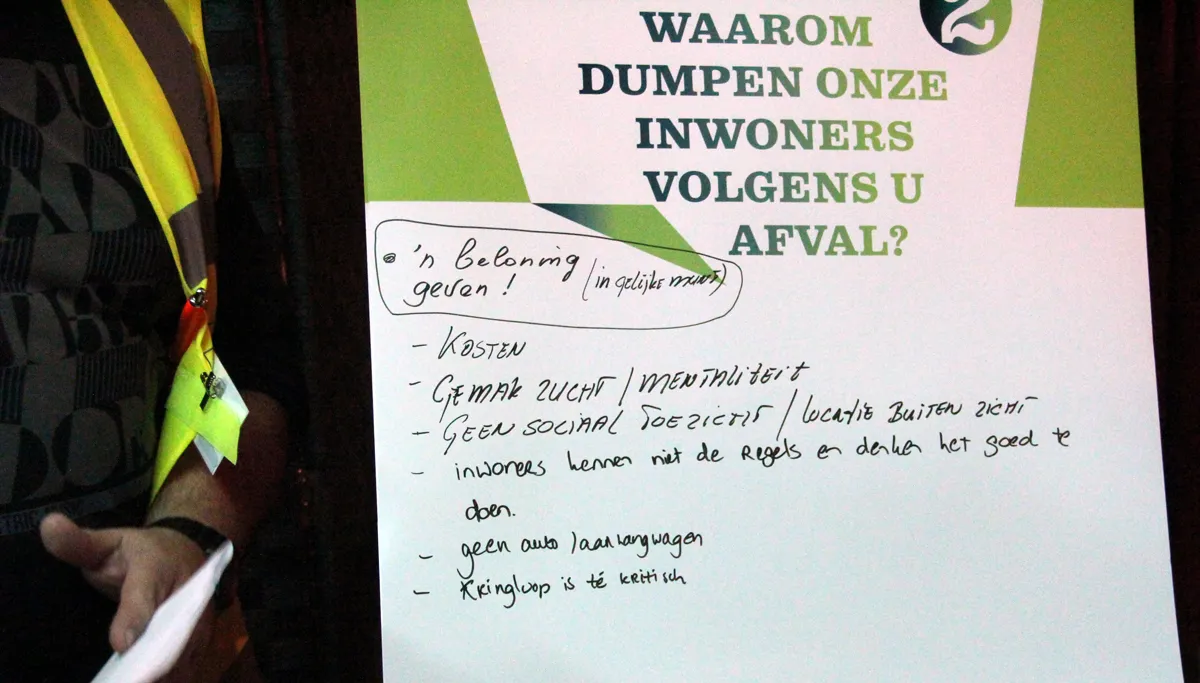 2
WAAROM
DUMPEN ONZE
INWONERS
VOLGENS U
AFVAL?
'n beloning (in gelijke munt)
geven!
- KOSTEN
- GEMAK ZUCHT / MENTALITEIT
- GEEN SOCIAAL TOEZICHT / LOCATIE BUITEN ZICHT
- inwoners kennen niet de Regels en denken het goed te
doen.
- geen auto / aanhangwagen
- Kringloop is té kritisch